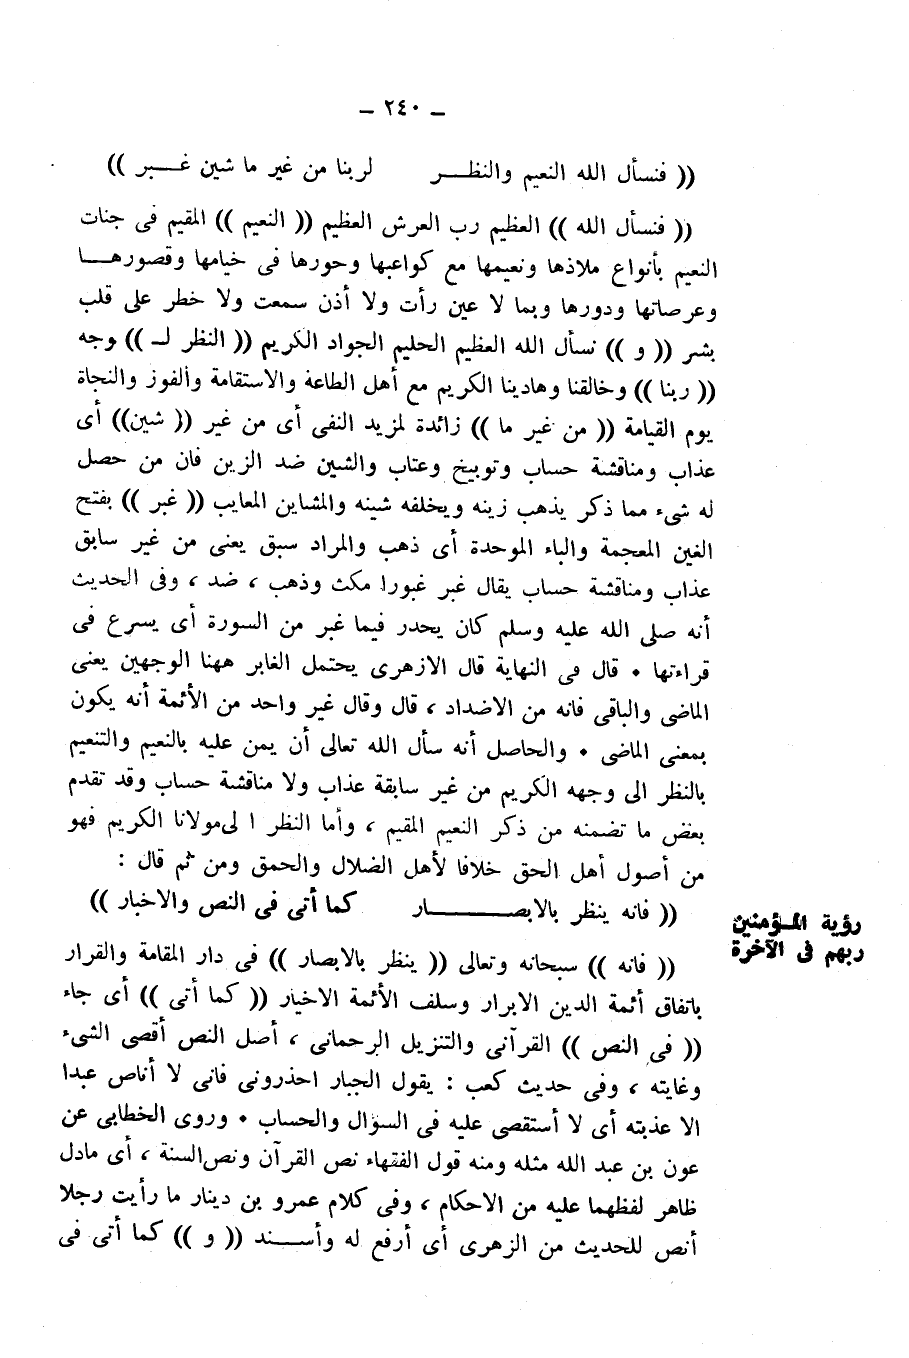 – ٢٤٠ –
(( فنسأل الله النعيم والنظـــر لربنا من غير ما شين غـــبر ))
(( فنسأل الله )) العظيم رب العرش العظيم (( النعيم )) المقيم فى جنات
النعيم بأنواع ملاذها ونعيمها مع كواعبها وحورها فى خيامها وقصورهـــا
وعرصاتها ودورها وبما لا عين رأت ولا أذن سمعت ولا خطر على قلب
بشر (( و )) نسأل الله العظيم الحليم الجواد الكريم (( النظر لـ )) وجه
(( ربنا )) وخالقنا وهادينا الكريم مع أهل الطاعة والاستقامة والفوز والنجاة
يوم القيامة (( من غير ما )) زائدة لمزيد النفى أى من غير (( شين)) أى
عذاب ومناقشة حساب وتوبيخ وعتاب والشين ضد الزين فان من حصل
له شىء مما ذكر يذهب زينه ويخلفه شينه والمشاين المعايب (( غبر )) بفتح
الغين المعجمة والباء الموحدة أى ذهب والمراد سبق يعنى من غير سابق
عذاب ومناقشة حساب يقال غبر غبورا مكث وذهب ، ضد ، وفى الحديث
أنه صلى الله عليه وسلم كان يحدر فيما غبر من السورة أى يسرع فى
قراءتها ٠ قال فى النهاية قال الازهرى يحتمل الغابر ههنا الوجهين يعنى
الماضى والباقى فانه من الاضداد ، قال وقال غير واحد من الأئمة أنه يكون
بمعنى الماضى ٠ والحاصل أنه سأل الله تعالى أن يمن عليه بالنعيم والتنعيم
بالنظر الى وجهه الكريم من غير سابقة عذاب ولا مناقشة حساب وقد تقدم
بعض ما تضمنه من ذكر النعيم المقيم ، وأما النظر ا لى مولانا الكريم فهو
من أصول أهل الحق خلافا لأهل الضلال والحمق ومن ثم قال :
(( فانه ينظر بالابصـــــــار كما أتى فى النص والاخبار ))
رؤية المـؤمنين
ربهم فى الآخرة
(( فانه )) سبحانه وتعالى (( ينظر بالابصار )) فى دار المقامة والقرار
باتفاق أئمة الدين الابرار وسلف الأئمة الاخيار (( كما أتى )) أى جاء
(( فى النص )) القرآنى والتنزيل الرحمانى ، أصل النص أقصى الشىء
وغايته ، وفى حديث كعب : يقول الجبار احذرونى فانى لا أناص عبدا
الا عذبته أى لا أستقصى عليه فى السؤال والحساب ٠ وروى الخطابى عن
عون بن عبد الله مثله ومنه قول الفقهاء نص القرآن ونص السنة ، أى مادل
ظاهر لفظهما عليه من الاحكام ، وفى كلام عمرو بن دينار ما رأيت رجلا
أنص للحديث من الزهرى أى أرفع له وأســـند (( و )) كما أتى فى